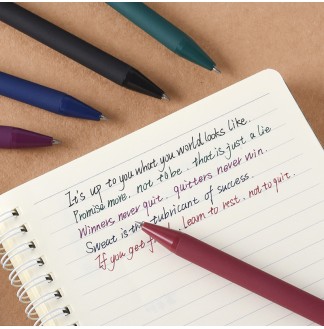 It's up to you what you world looks like.
Promise more. not to be. that is just a lie
Winners never quit. quitters never win.
Sweat is the lubricant of success.
If you get learn to rest. not to quit.